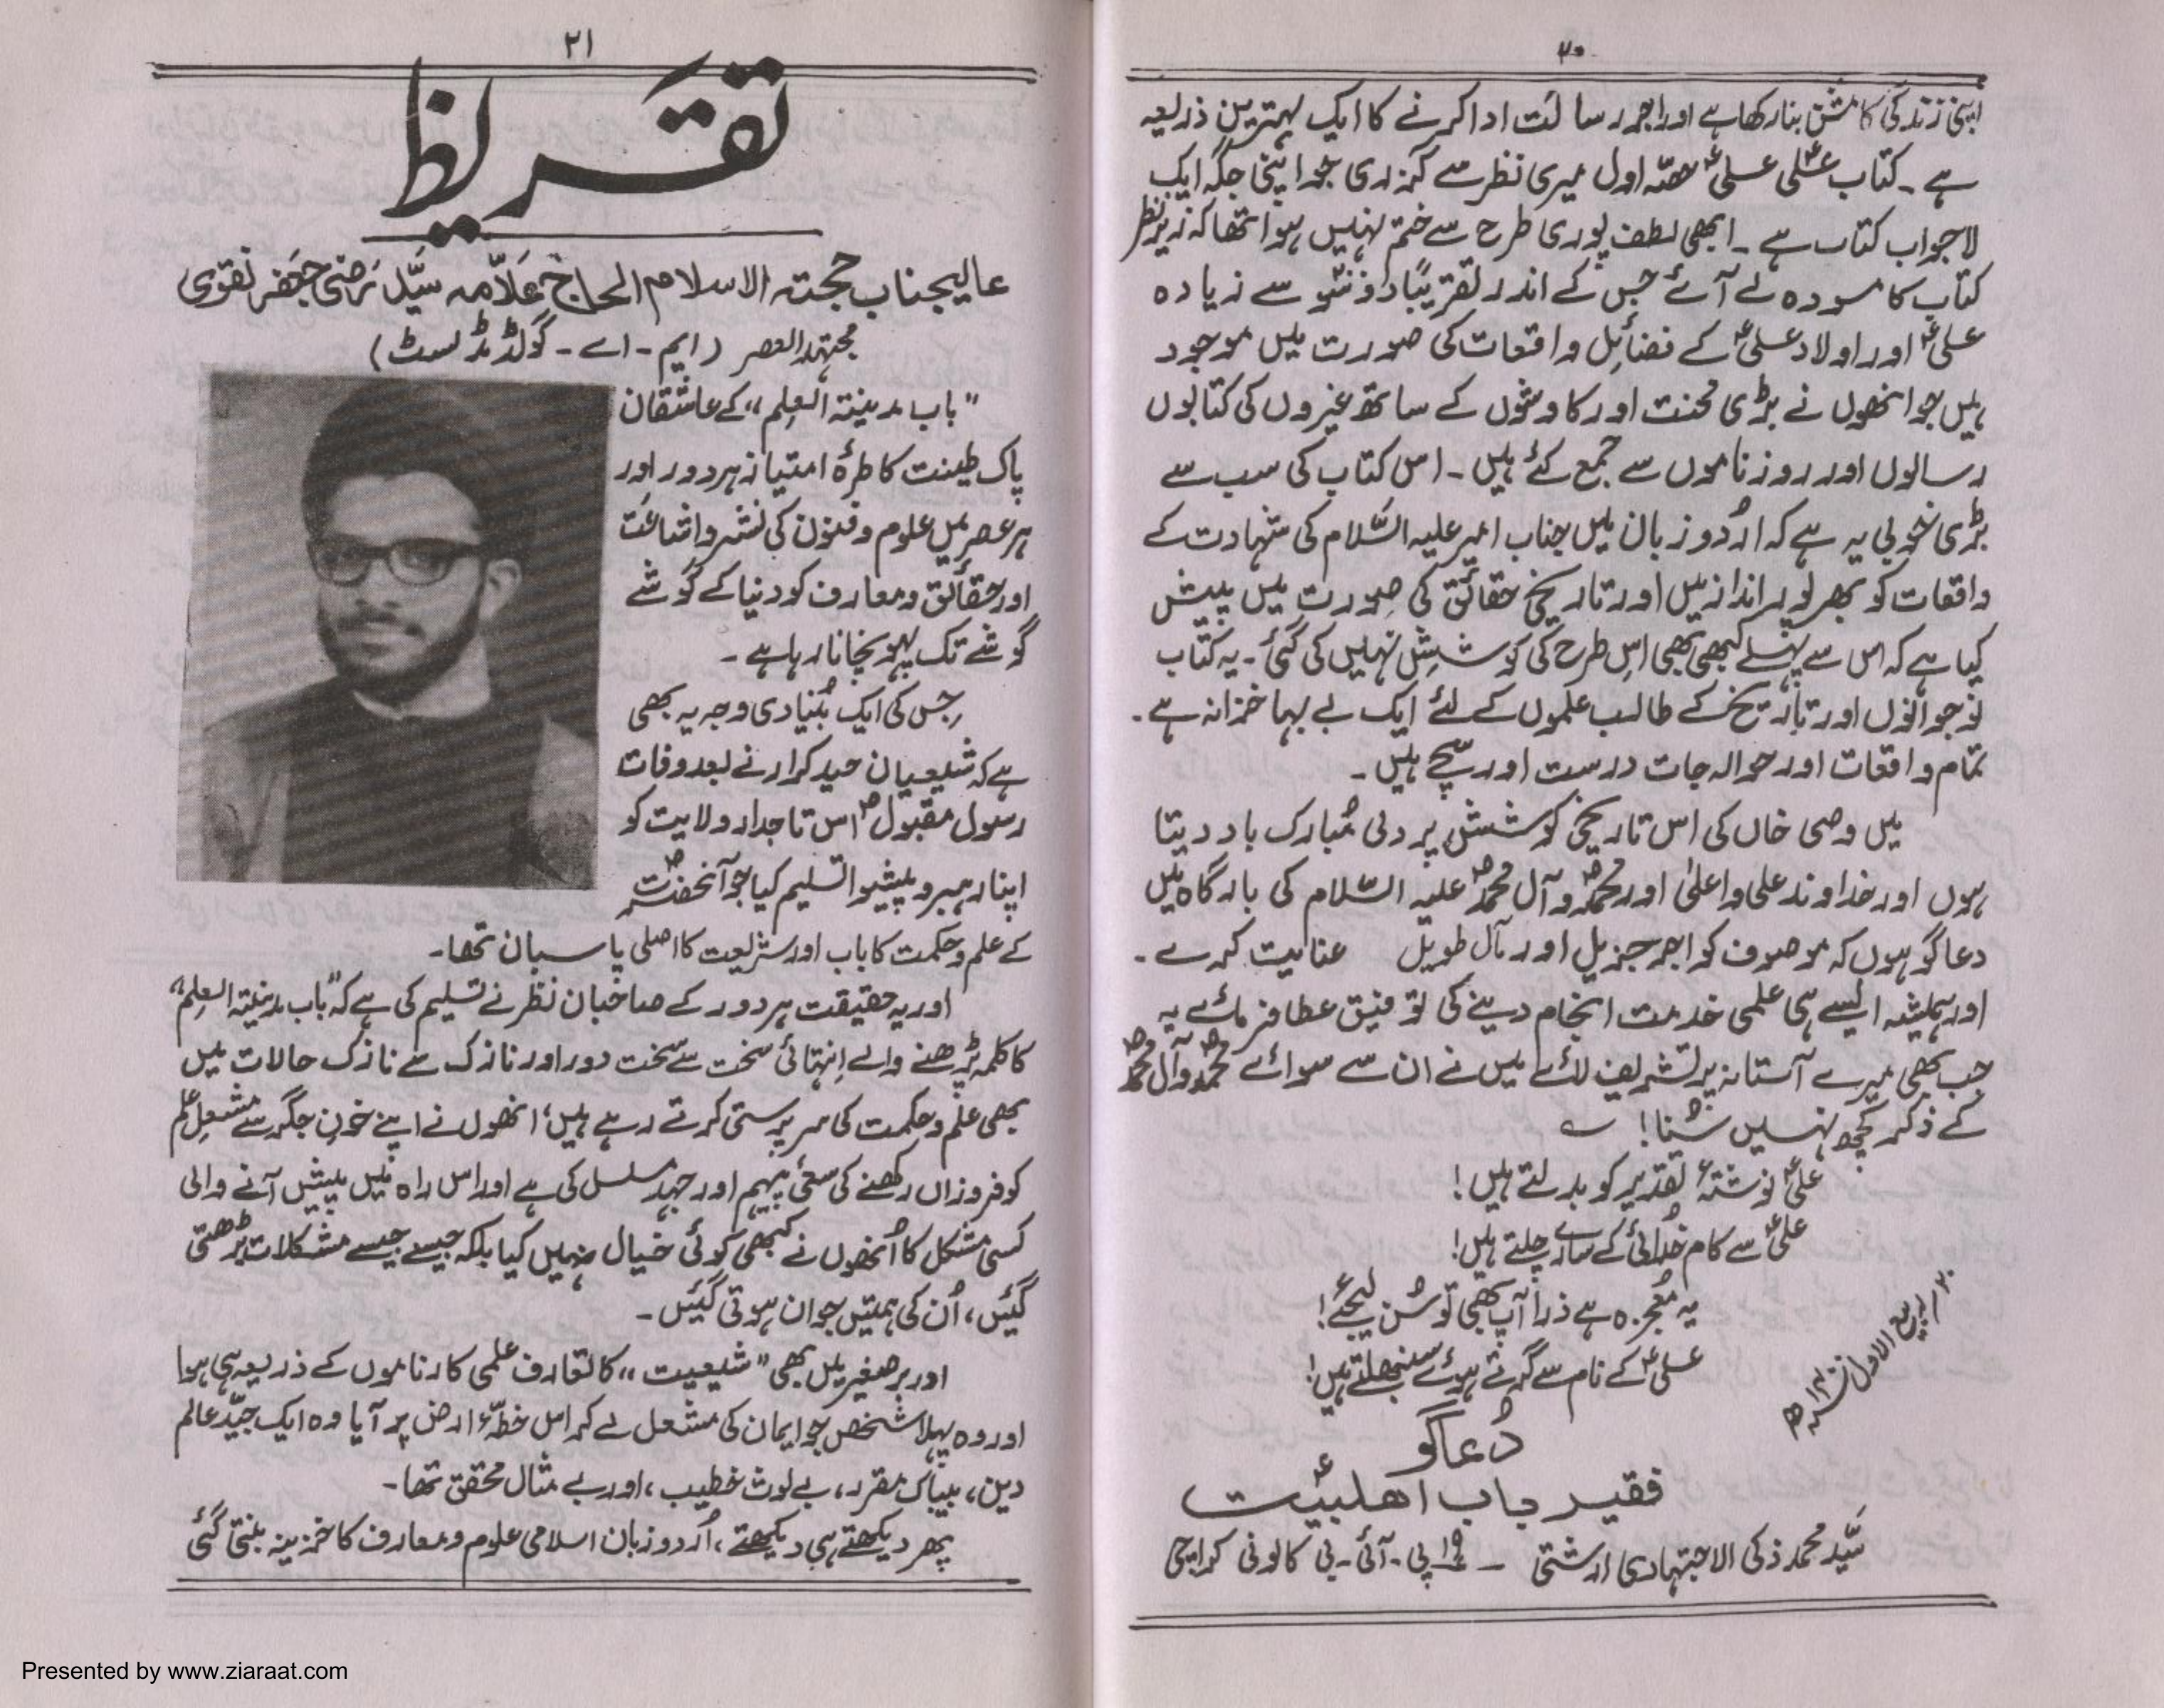 ۲۰
اپنی زندگی کا مشن بنا رکھا ہے اور اجر رسالت ادا کرنے کا ایک بہترین ذریعہ
ہے ۔ کتاب علیؑ علیؑ حصّہ اول میری نظر سے گزری جو اپنی جگہ ایک
لاجواب کتاب ہے ۔ ابھی لطف پوری طرح سے ختم نہیں ہوا تھا کہ زیر نظر
کتاب کا مسودہ لے آئے جس کے اندر تقریباً دو سو سے زیادہ
علیؑ اور اولاد علیؑ کے فضائل واقعات کی صورت میں موجود
ہیں جو انھوں نے بڑی محنت اور کاوشوں کے ساتھ غیروں کی کتابوں
رسالوں اور روزناموں سے جمع کئے ہیں ۔ اس کتاب کی سب سے
بڑی خوبی یہ ہے کہ اُردو زبان میں جناب امیر علیہ السّلام کی شہادت کے
واقعات کو بھرپور انداز میں اور تاریخی حقائق کی صورت میں پیش
کیا ہے کہ اس سے پہلے کبھی بھی اس طرح کی کوشش نہیں کی گئی ۔ یہ کتاب
نوجوانوں اور تاریخ کے طالب علموں کے لئے ایک بے بہا خزانہ ہے ۔
تمام واقعات اور حوالہ جات درست اور سچّے ہیں ۔
میں وصی خاں کی اس تاریخی کوشش پر دلی مُبارک باد دیتا
ہوں اور خداوند علی واعلیٰ اور محمدؐ وآل محمدؐ علیہ السّلام کی بارگاہ میں
دعا گو ہوں کہ موصوف کو اجر جزیل اور مآل طویل عنایت کرے ۔
اور ہمیشہ ایسے ہی علمی خدمت انجام دینے کی توفیق عطا فرمائے یہ
جب بھی میرے آستانہ پر تشریف لائے میں نے ان سے سوائے محمدؐ وآل محمدؐ
کے ذکر کچھ نہیں سُنا! ؎
علیؑ نوشتۂ تقدیر کو بدلتے ہیں!
علیؑ سے کام خُدائی کے سارے چلتے ہیں!
یہ مُعجزہ ہے ذرا آپ بھی تو سُن لیجئے!
علیؑ کے نام سے گرتے ہوئے سنبھلتے ہیں!
۲۰/ ربیع الاول ۱۴۰۰ھ
دُعاگو
فقیر باب اھلبیتؑ
سیّد محمد ذکی الاجتہادی ارشتی ۔ ۱۹ پی ۔ آئی ۔ بی کالونی کراچی
۲۱
تقریظ
عالیجناب حجتہ الاسلام الحاج علّامہ سیّد رضی جعفر نقوی
مجتہد العصر (ایم ۔ اے ۔ گولڈ مڈلسٹ)
”باب مدینتہ العلم“ کے عاشقان
پاک طینت کا طرۂ امتیاز ہر دور اور
ہر عصر میں علوم و فنون کی نشر و اشاعت
اور حقائق و معارف کو دنیا کے گوشے
گوشے تک پہونچانا رہا ہے ۔
جس کی ایک بُنیادی وجہ یہ بھی
ہے کہ شیعیان حیدر کرار نے بعد وفات
رسول مقبولؐ اس تاجدار ولایت کو
اپنا رہبر و پیشوا تسلیم کیا جو آنحضرتؐ
کے علم و حکمت کا باب اور شریعت کا اصلی پاسبان تھا ۔
اور یہ حقیقت ہر دور کے صاحبان نظر نے تسلیم کی ہے کہ ”باب مدینتہ العلم“
کا کلمہ پڑھنے والے اِنتہائی سخت سے سخت دور اور نازک سے نازک حالات میں
بھی علم و حکمت کی سرپرستی کرتے رہے ہیں، انھوں نے اپنے خونِ جگر سے مشعلِ علم
کو فروزاں رکھنے کی سعئ پیہم اور جہدِ مسلسل کی ہے اور اس راہ میں پیش آنے والی
کسی مشکل کا اُنھوں نے کبھی کوئی خیال نہیں کیا بلکہ جیسے جیسے مشکلات بڑھتی
گیئں، اُن کی ہمتیں جوان ہوتی گیئں ۔
اور برصغیر میں بھی ”شیعیت“ کا تعارف علمی کارناموں کے ذریعہ ہی ہوا
اور وہ پہلا شخص جو ایمان کی مشعل لے کر اس خطۂ ارض پر آیا وہ ایک جیّد عالم
دین، بیباک مقرر، بے لوث خطیب، اور بے مثال محقق تھا ۔
پھر دیکھتے ہی دیکھتے، اُردو زبان اسلامی علوم و معارف کا خزینہ بنتی گئی
Presented by www.ziaraat.com